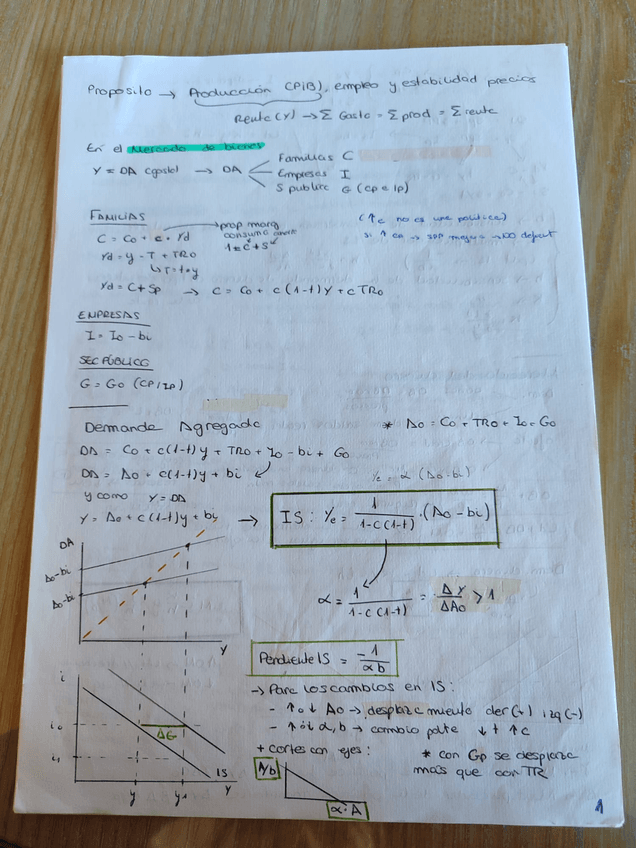 Proposito → Producción (PiB), empleo y estabilidad precios
Renta (Y) → Σ Gasto = Σ prod = Σ renta
En el Mercado de bienes
Y = DA (gasto) → DA
Familias C
Empresas I
S public G (Cp e Ip)
FAMILIAS
C = Co + c · Yd
prop marg consumo
1 = c + s
(↑c no es una politica)
Yd = y - T + TRo
T = t · y
Yd = C + Sp → C = Co + c (1-t) Y + c TRo
EMPRESAS
I = Io - bi
SEC PÚBLICO
G = Go (CP/IP)
Demanda Agregada
* Ao = Co + TRo + Io + Go
DA = Co + c(1-t)y + TRo + Io - bi + Go
DA = Ao + c(1-t)y + bi
Ye = α (Ao - bi)
y como Y = DA
Y = Ao + c(1-t)y + bi → IS: Ye = 1 / 1-c(1-t) · (Ao - bi)
DA
Ao-bi
Ao-bi
Y
α = 1 / 1-c(1-t) = ΔY / ΔAo > 1
Pendiente IS = -1 / αb
i
io
i1
ΔG
IS
y
y1
Y
→ Para los cambios en IS:
- ↑ o ↓ Ao → desplazamiento der(+) izq(-)
- ↑ ó ↓ α, b → cambio pdte ↓ t ↑ c
+ cortes con ejes:
* con Gp se desplaza
más que con TR
A/b
α · A
1